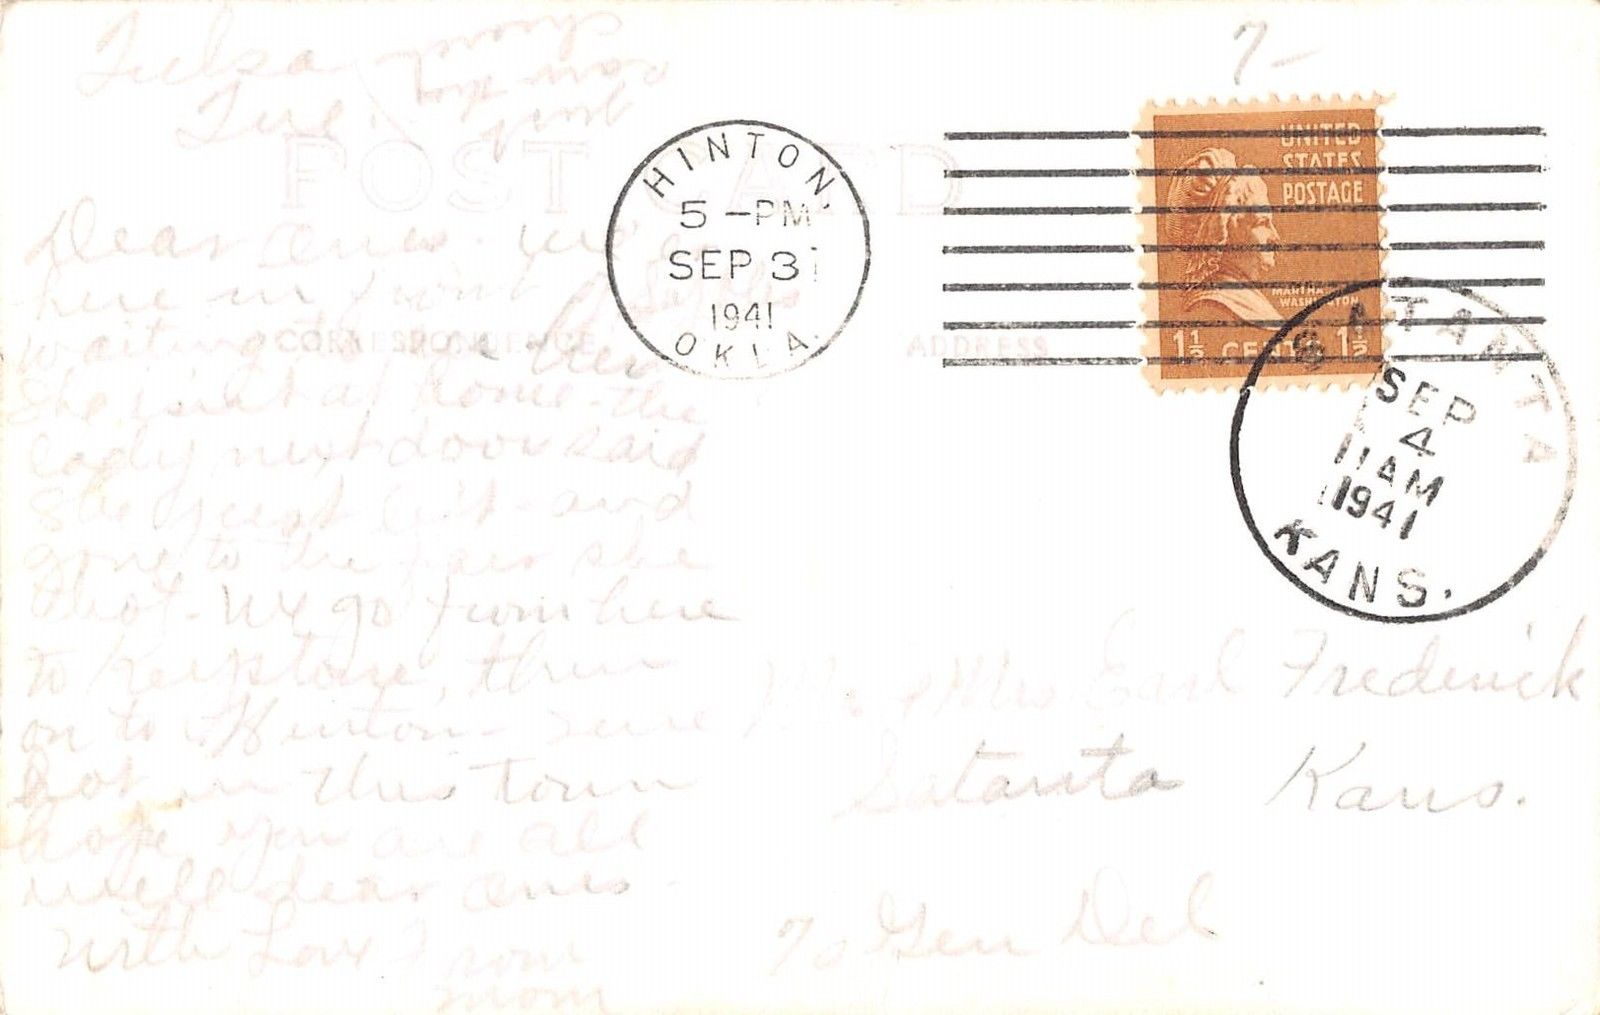 Tulsa
Tue.
7-
POST CARD
HINTON.
5-PM
SEP 3
1941
OKLA.
UNITED
STATES
POSTAGE
MARTHA
WASHINGTON
1½ CENTS 1½
SATANTA
SEP
4
11AM
1941
KANS.
CORRESPONDENCE
ADDRESS
Dear Ones. We're
here in front
waiting
She isn't at home - the
lady next door said
She just left - and
gone to the she
thot - We go from here
to Keystone, then
on to Hinton - sure
hot in this town
hope you are all
well dear ones -
With Love From
Mom
Mr & Mrs Earl Frederick
Satanta Kans.
% Gen Del